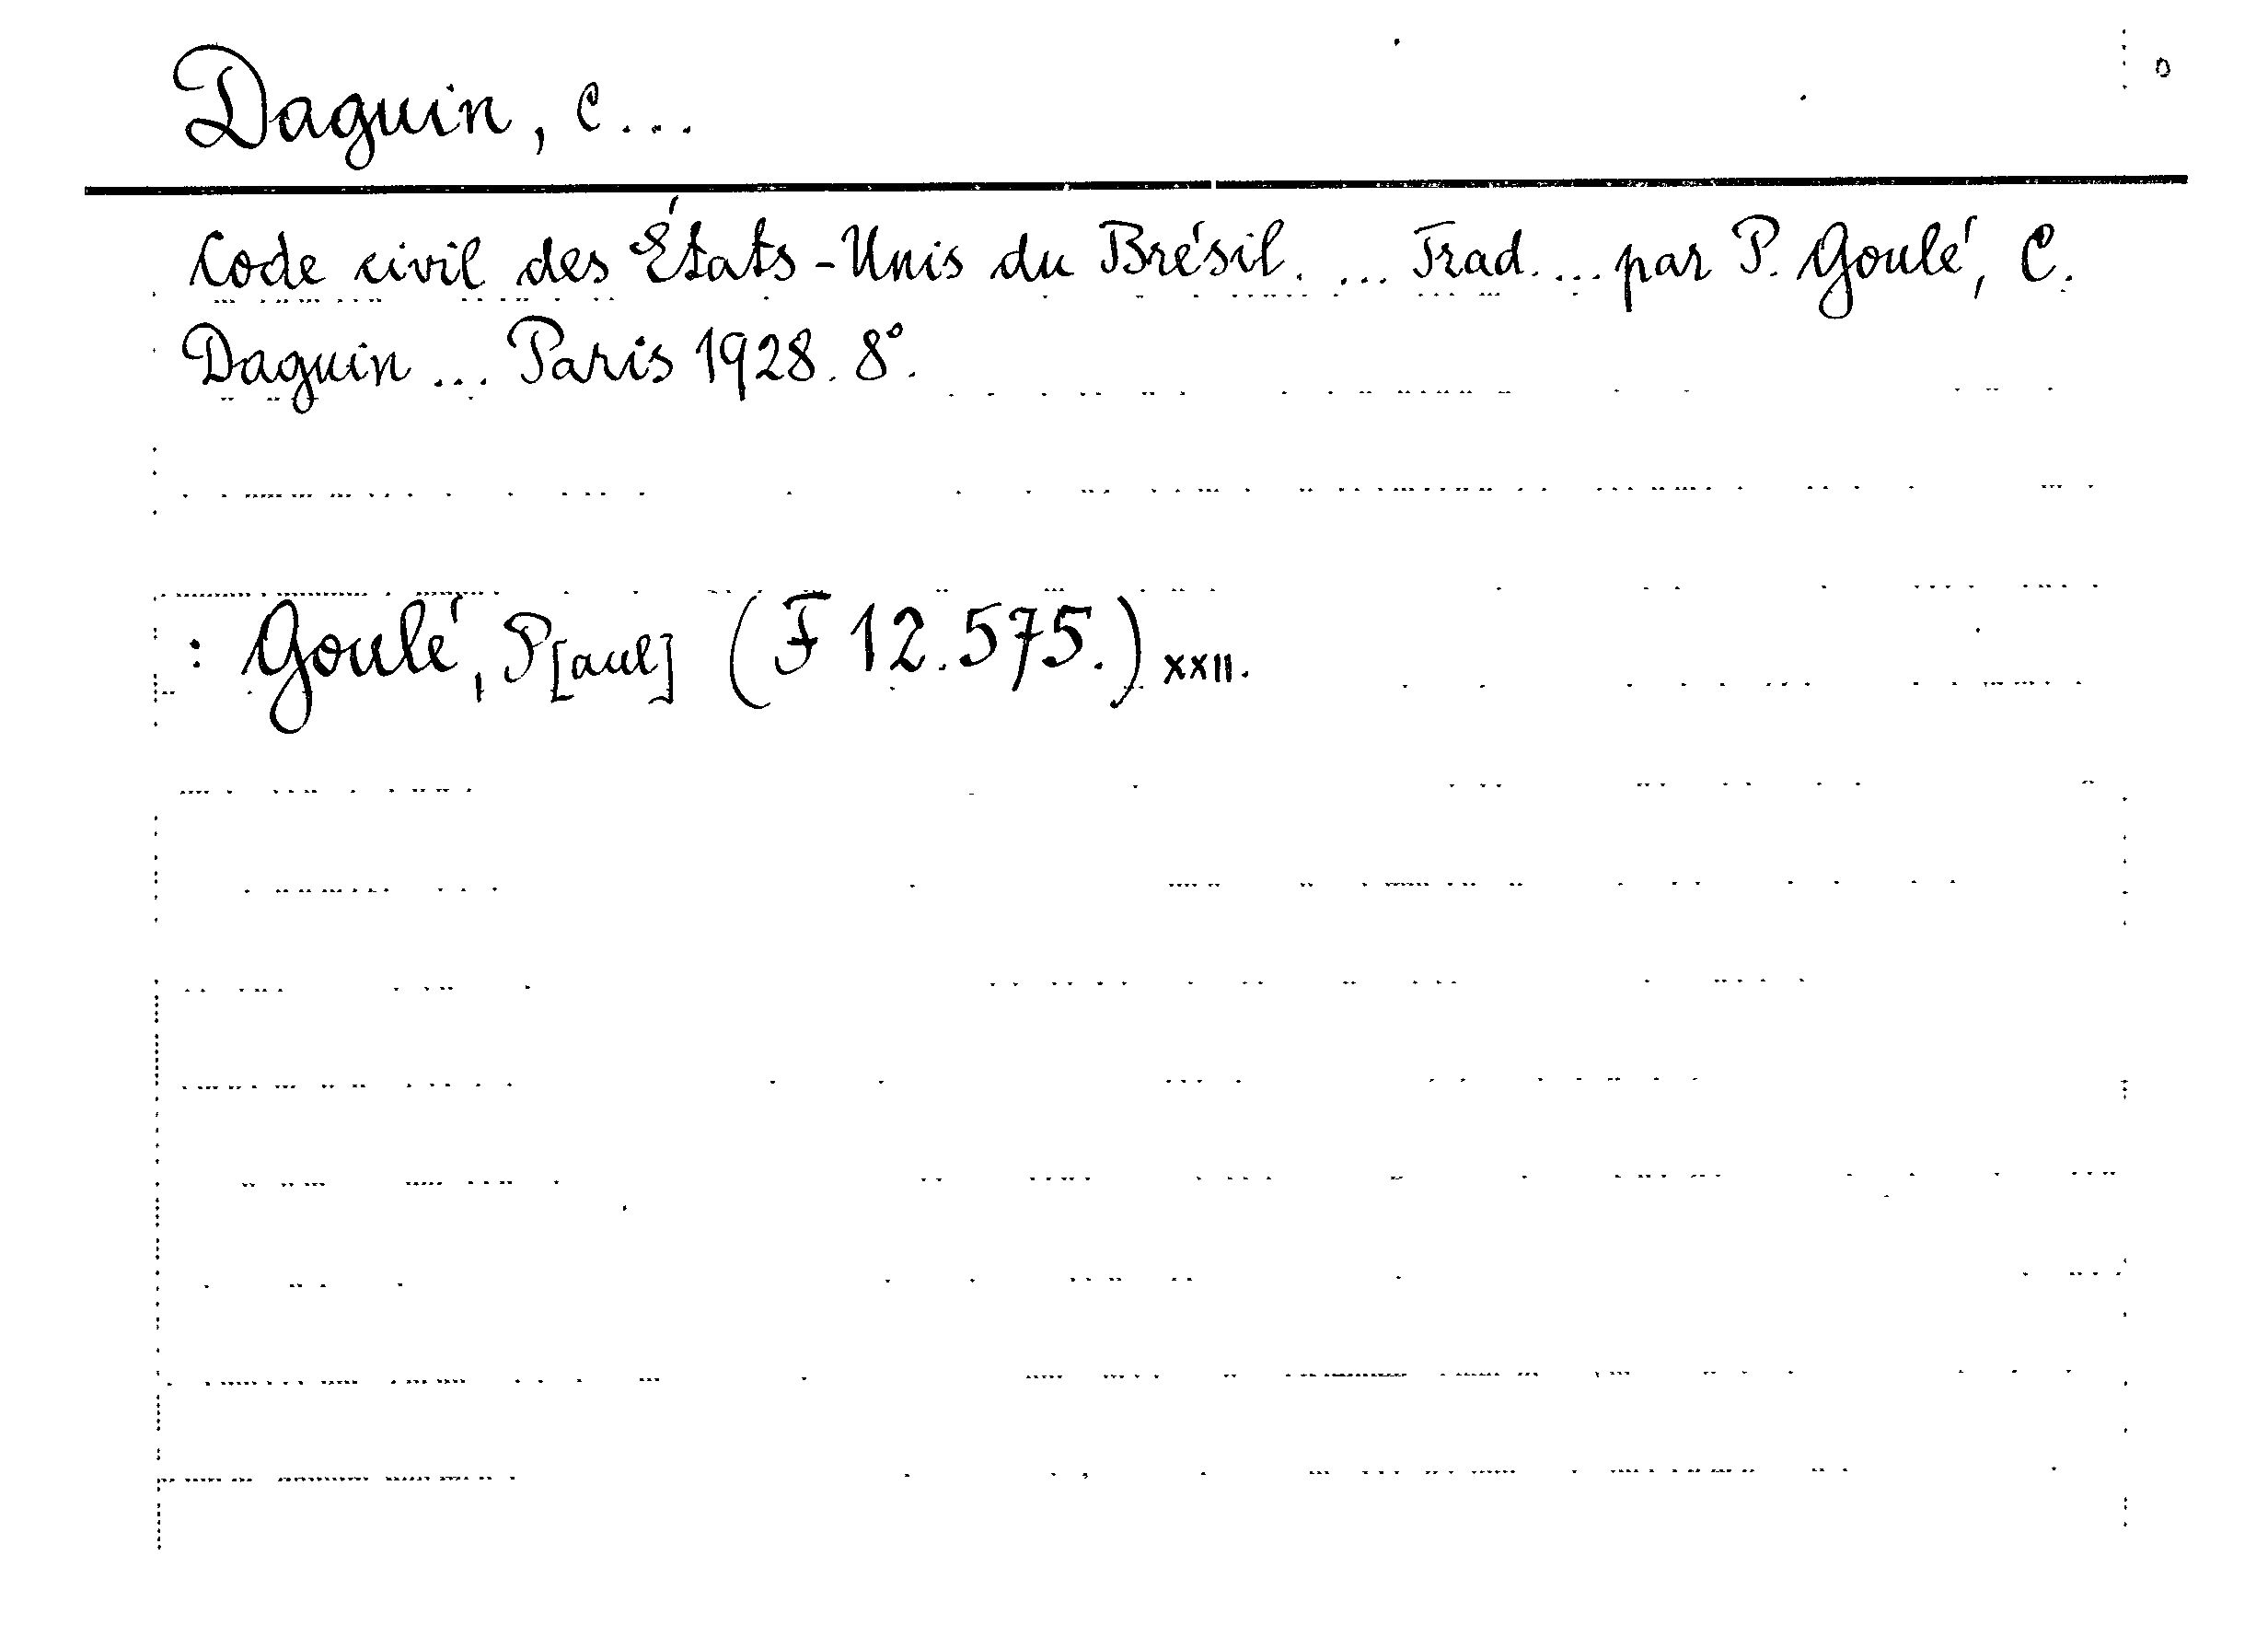 Daguin, C...
Code civil des États-Unis du Brésil. ... Trad. ... par P. Goulé, C.
Daguin ... Paris 1928. 8°.
: Goulé, P[aul] (F 12.575.) XXII.